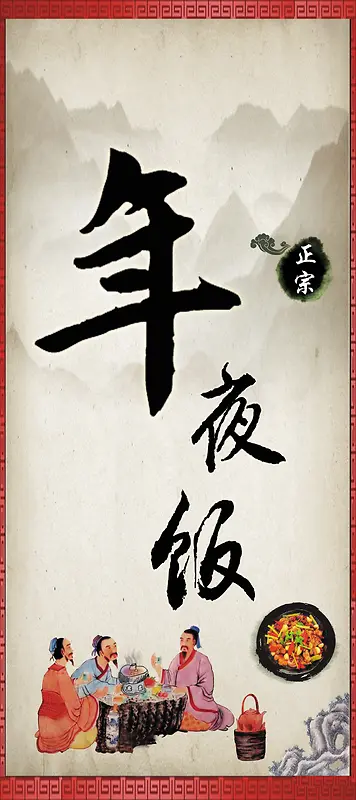 年
夜
饭
正宗